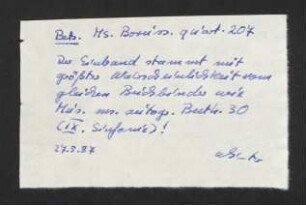 Betr. Ms. Boruss. quart. 207
Der Einband stammt mit
größter Wahrscheinlichkeit vom
gleichen Buchbinder wie
Mus. ms. autogr. Beeth. 30
(IX. Sinfonie)!
27.3.87